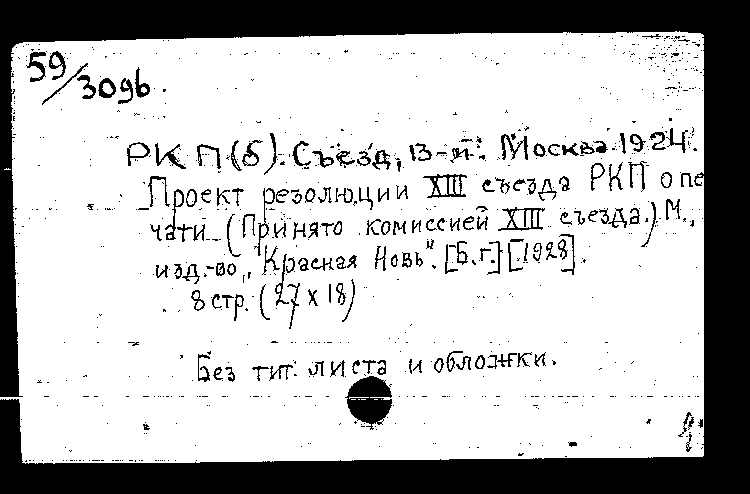 59/3096
РКП(б). Съезд, 13-й. Москва. 1924.
Проект резолюции XIII съезда РКП о пе
чати. (Принято комиссией XIII съезда.) М.,
изд.-во, "Красная Новь". [Б.г.] [1928].
8 стр. (27 x 18)
Без тит. листа и обложки.